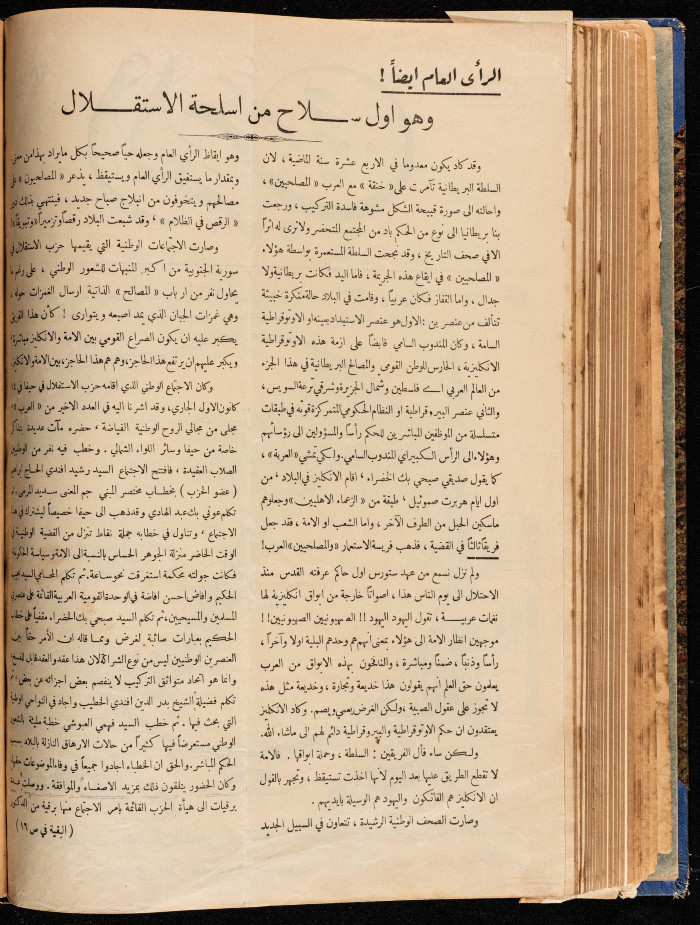 الرأى العام ايضاً !
وهو اول سلاح من اسلحة الاستقلال
وقد كاد يكون معدوما في الاربع عشرة سنة الماضية ، لان
السلطة البريطانية تآمرت على « خنقة » مع العرب « المصلحيين » ،
واحالته الى صورة قبيحة الشكل مشوهة فاسدة التركيب ، ورجعت
بنا بريطانيا الى نوع من الحكم باد من المجتمع المتحضر ولا ترى له اثراً
الا في صحف التاريخ ، وقد نجحت السلطة المستعمرة بواسطة هؤلاء
« المصلحيين » في ايقاع هذه الجريمة ، فاما اليد فكانت بريطانية ولا
جدال ، واما القفاز فكان عربياً ، وقامت في البلاد حالة منكرة خبيثة
تتألف من عنصرين : الاول هو عنصر الاستبداد بعينه او الاوتوقراطية
السامة ، وكان المندوب السامي قابضاً على ازمة هذه الاوتوقراطية
الانكليزية ، الحارس للوطن القومي والمصالح البريطانية في هذا الجزء
من العالم العربي اى فلسطين وشمال الجزيرة وشرقي ترعة السويس ،
والثاني عنصر البيروقراطية او النظام الحكومي المتمركزة قوته في طبقات
متسلسلة من الموظفين المباشرين للحكم رأساً والمسؤولين الى رؤسائهم
وهؤلاء الى الرأس الكبير اي المندوب السامي . ولكي تمشي « العربة » ،
كما يقول صديقي صبحي بك الخضراء ، اقام الانكليز في البلاد ، من
اول ايام هربرت صموئيل ، طبقة من « الزعماء الاهليين » وجعلوهم
ماسكين الحبل من الطرف الآخر ، واما الشعب او الامة ، فقد جعل
فريقاً ثالثاً في القضية ، فذهب فريسة الاستعمار « والمصلحيين » العرب !
ولم نزل نسمع من عهد ستورس اول حاكم عرفته القدس منذ
الاحتلال الى يوم الناس هذا ، اصواتاً خارجة من ابواق انكليزية لها
نغات عربية ، تقول اليهود اليهود !! الصهيونيون الصهيونيون !!
موجهين انظار الامة الى هؤلاء بمعنى انهم هم وحدهم البلية اولا وآخراً ،
رأساً وذنباً ، ضمناً ومباشرة ، والنافخون بهذه الابواق من العرب
يعلمون حق العلم انهم يقولون هذا خديعة وتجارة ، وخديعة مثل هذه
لا تجوز على عقول الصبية ، ولكن الغرض يعمي ويصم . وكاد الانكليز
يعتقدون ان حكم الاوتوقراطية والبيروقراطية دائم لهم الى ماشاء الله.
ولكن ساء فأل الفريقين : السلطة ، وحملة ابواقها . فالامة
لا تقطع الطريق عليها بعد اليوم لانها اخذت تستيقظ ، وتجهر بالقول
ان الانكليز هم الفاتكون واليهود هم الوسيلة بايديهم .
وصارت الصحف الوطنية الرشيدة ، تتعاون في السبيل الجديد
وهو ايقاظ الرأي العام وجعله حياً صحيحاً بكل مايراد بهذا من معنى
وبمقدار ما يستفيق الرأي العام ويستيقظ ، يذعر « المصلحيون » على
مصالحهم ويتخوفون من انبلاج صباح جديد ، فينتهي بذلك دور
« الرقص في الظلام » ، وقد شبعت البلاد رقصاً وتزميراً
وصارت الاجتماعات الوطنية التي يقيمها حزب الاستقلال في
سورية الجنوبية من اكبر المنبهات للشعور الوطني ، على رغم ما
يحاول نفر من ارباب « المصالح » الذاتية ارسال الغمزات حوله ،
وهي غمزات الجبان الذي يمد اصبعه ويتوارى ! كأن هذا الفريق
يكبر عليه ان يكون الصراع القومي بين الامة والانكليز مباشرة
ويكبر عليهم ان يرتفع هذا الحاجز ، وهم هم هذا الحاجز ، بين الامة والانكليز
وكان الاجتماع الوطني الذي اقامه حزب الاستقلال في حيفا في
كانون الاول الجاري ، وقد اشرنا اليه في العدد الاخير من « العرب »
مجلى من مجالي الروح الوطنية الفياضة ، حضره مآت عديدة
خاصة من حيفا وسائر اللواء الشمالي . وخطب فيه نفر من الوطنيين
الصلاب العقيدة ، فافتتح الاجتماع السيد رشيد افندي الحاج ابراهيم
( عضو الحزب ) بخطاب مختصر المبني جم المعنى سديد المرمى . ثم
تكلم عوني بك عبد الهادي وقد ذهب الى حيفا خصيصاً ليشترك في هذا
الاجتماع ، وتناول في خطابه جملة نقاط تنزل من القضية الوطنية في
الوقت الحاضر منزلة الجوهر الحساس بالنسبة الى الامة وسياسة الحكومة
فكانت جولته محكمة استغرقت نحو ساعة . ثم تكلم المحامي السيد
الحكيم وافاض احسن افاضة في الوحدة القومية العربية القائمة على عنصري
المسلمين والمسيحيين ، ثم تكلم السيد صبحي بك الخضراء مقفياً على خطاب
الحكيم بعبارات صائبة لغرض ومما قاله ان الأمر حقاً بين
العنصرين الوطنيين ليس من نوع الشراكة لان هذا عقد والعقد قابل للفسخ
وانما هو اتحاد متواثق التركيب لا ينفصم بعض اجزائه عن بعض ، ثم
تكلم فضيلة الشيخ بدر الدين افندي الخطيب واجاد في النواحي الوطنية
التي بحث فيها . ثم خطب السيد فهمي العبوشي خطبة مليئة بالشعور
الوطني مستعرضاً فيها كثيراً من حالات الارهاق النازلة بالبلاد بسبب
الحكم المباشر . والحق ان الخطباء اجادوا جميعاً في وفاء الموضوعات حقها
وكان الحضور يتلقون ذلك بمزيد الاصغاء والموافقة . ووصلت
برقيات الى هيأة الحزب القائمة بامر الاجتماع منها برقية من الدكتور
( البقية في ص ١٦ )